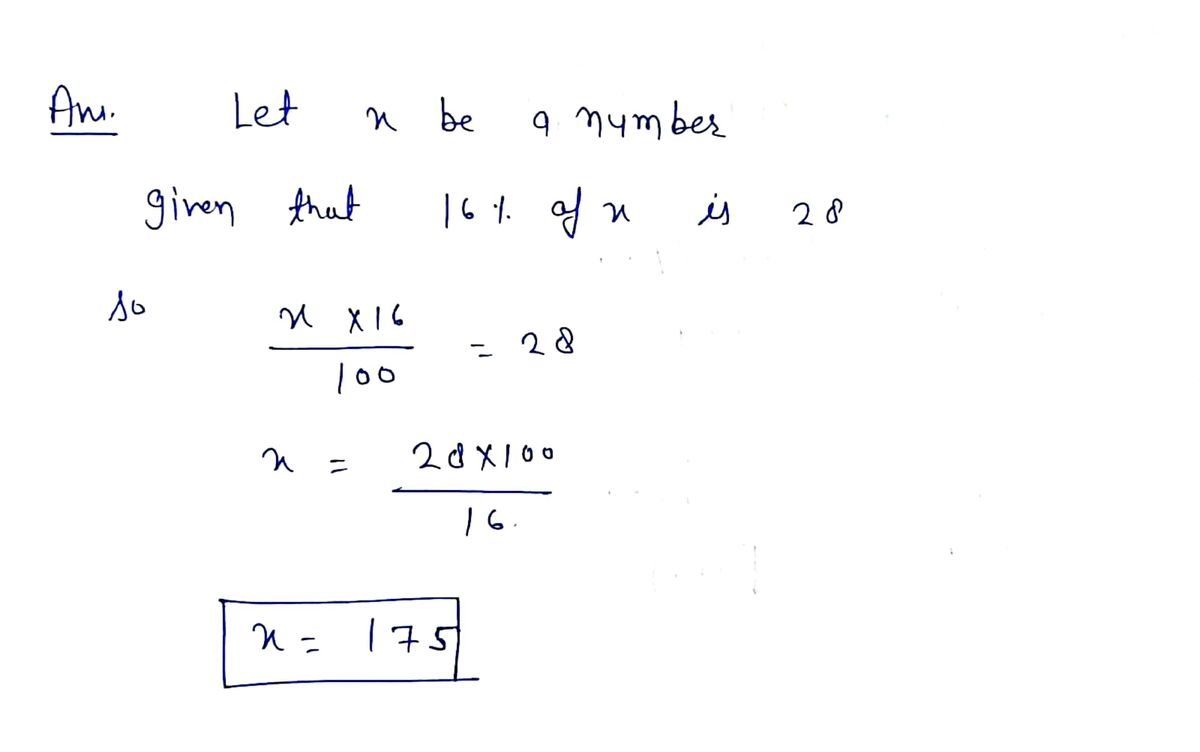 Ans. Let x be a number
given that 16% of x is 28
so
x × 16
100
= 28
x = 28 × 100
16.
x = 175